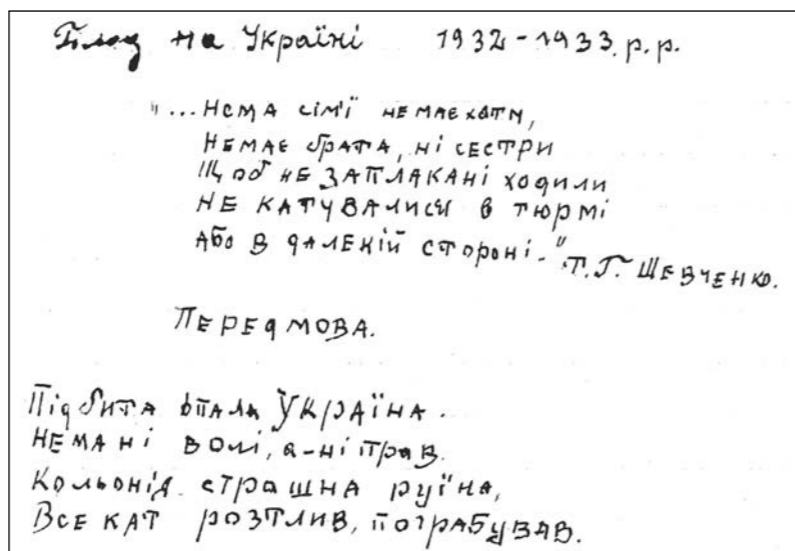 Голод на Україні 1932-1933. р.р.
"...Нема сім'ї немає хати,
Немає брата, ні сестри
Щоб не заплакані ходили
Не катувалися в тюрмі
Або в далекій стороні-"
Т.Г. Шевченко.
Передмова.
Підбита впала Україна.
Нема ні волі, а-ні прав.
Кольонія страшна руїна,
Все кат розтлив, пограбував.